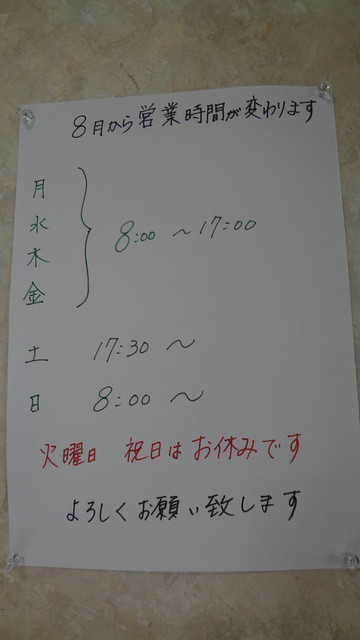 8月から営業時間が変わります
月
水
木
金
8:00 〜 17:00
土 17:30 〜
日 8:00 〜
火曜日 祝日はお休みです
よろしくお願い致します